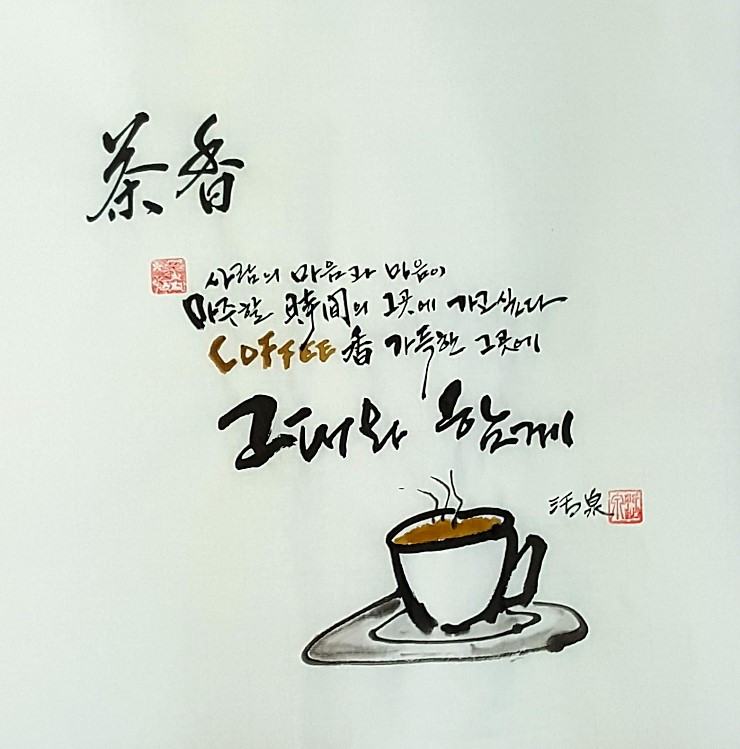 茶香
사람의 마음과 마음이
마주할 時間의 그곳에 가고싶다
COFFEE香 가득한 그곳에
그대와 함께
活泉